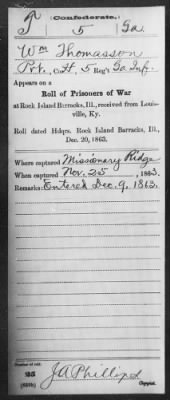 Confederate.
T 5 Ga.
Wm Thomasson
Pvt., Co. H, 5 Reg't Ga. Inf.
Appears on a
Roll of Prisoners of War
at Rock Island Barracks, Ill., received from Louis-
ville, Ky.
Roll dated Hdqrs. Rock Island Barracks, Ill.,
Dec. 20, 1863.
Where captured Missionary Ridge
When captured Nov. 25, 1863.
Remarks: Entered Dec. 9, 1863.
Number of roll:
25
(639b) J A Phillips
Copyist.